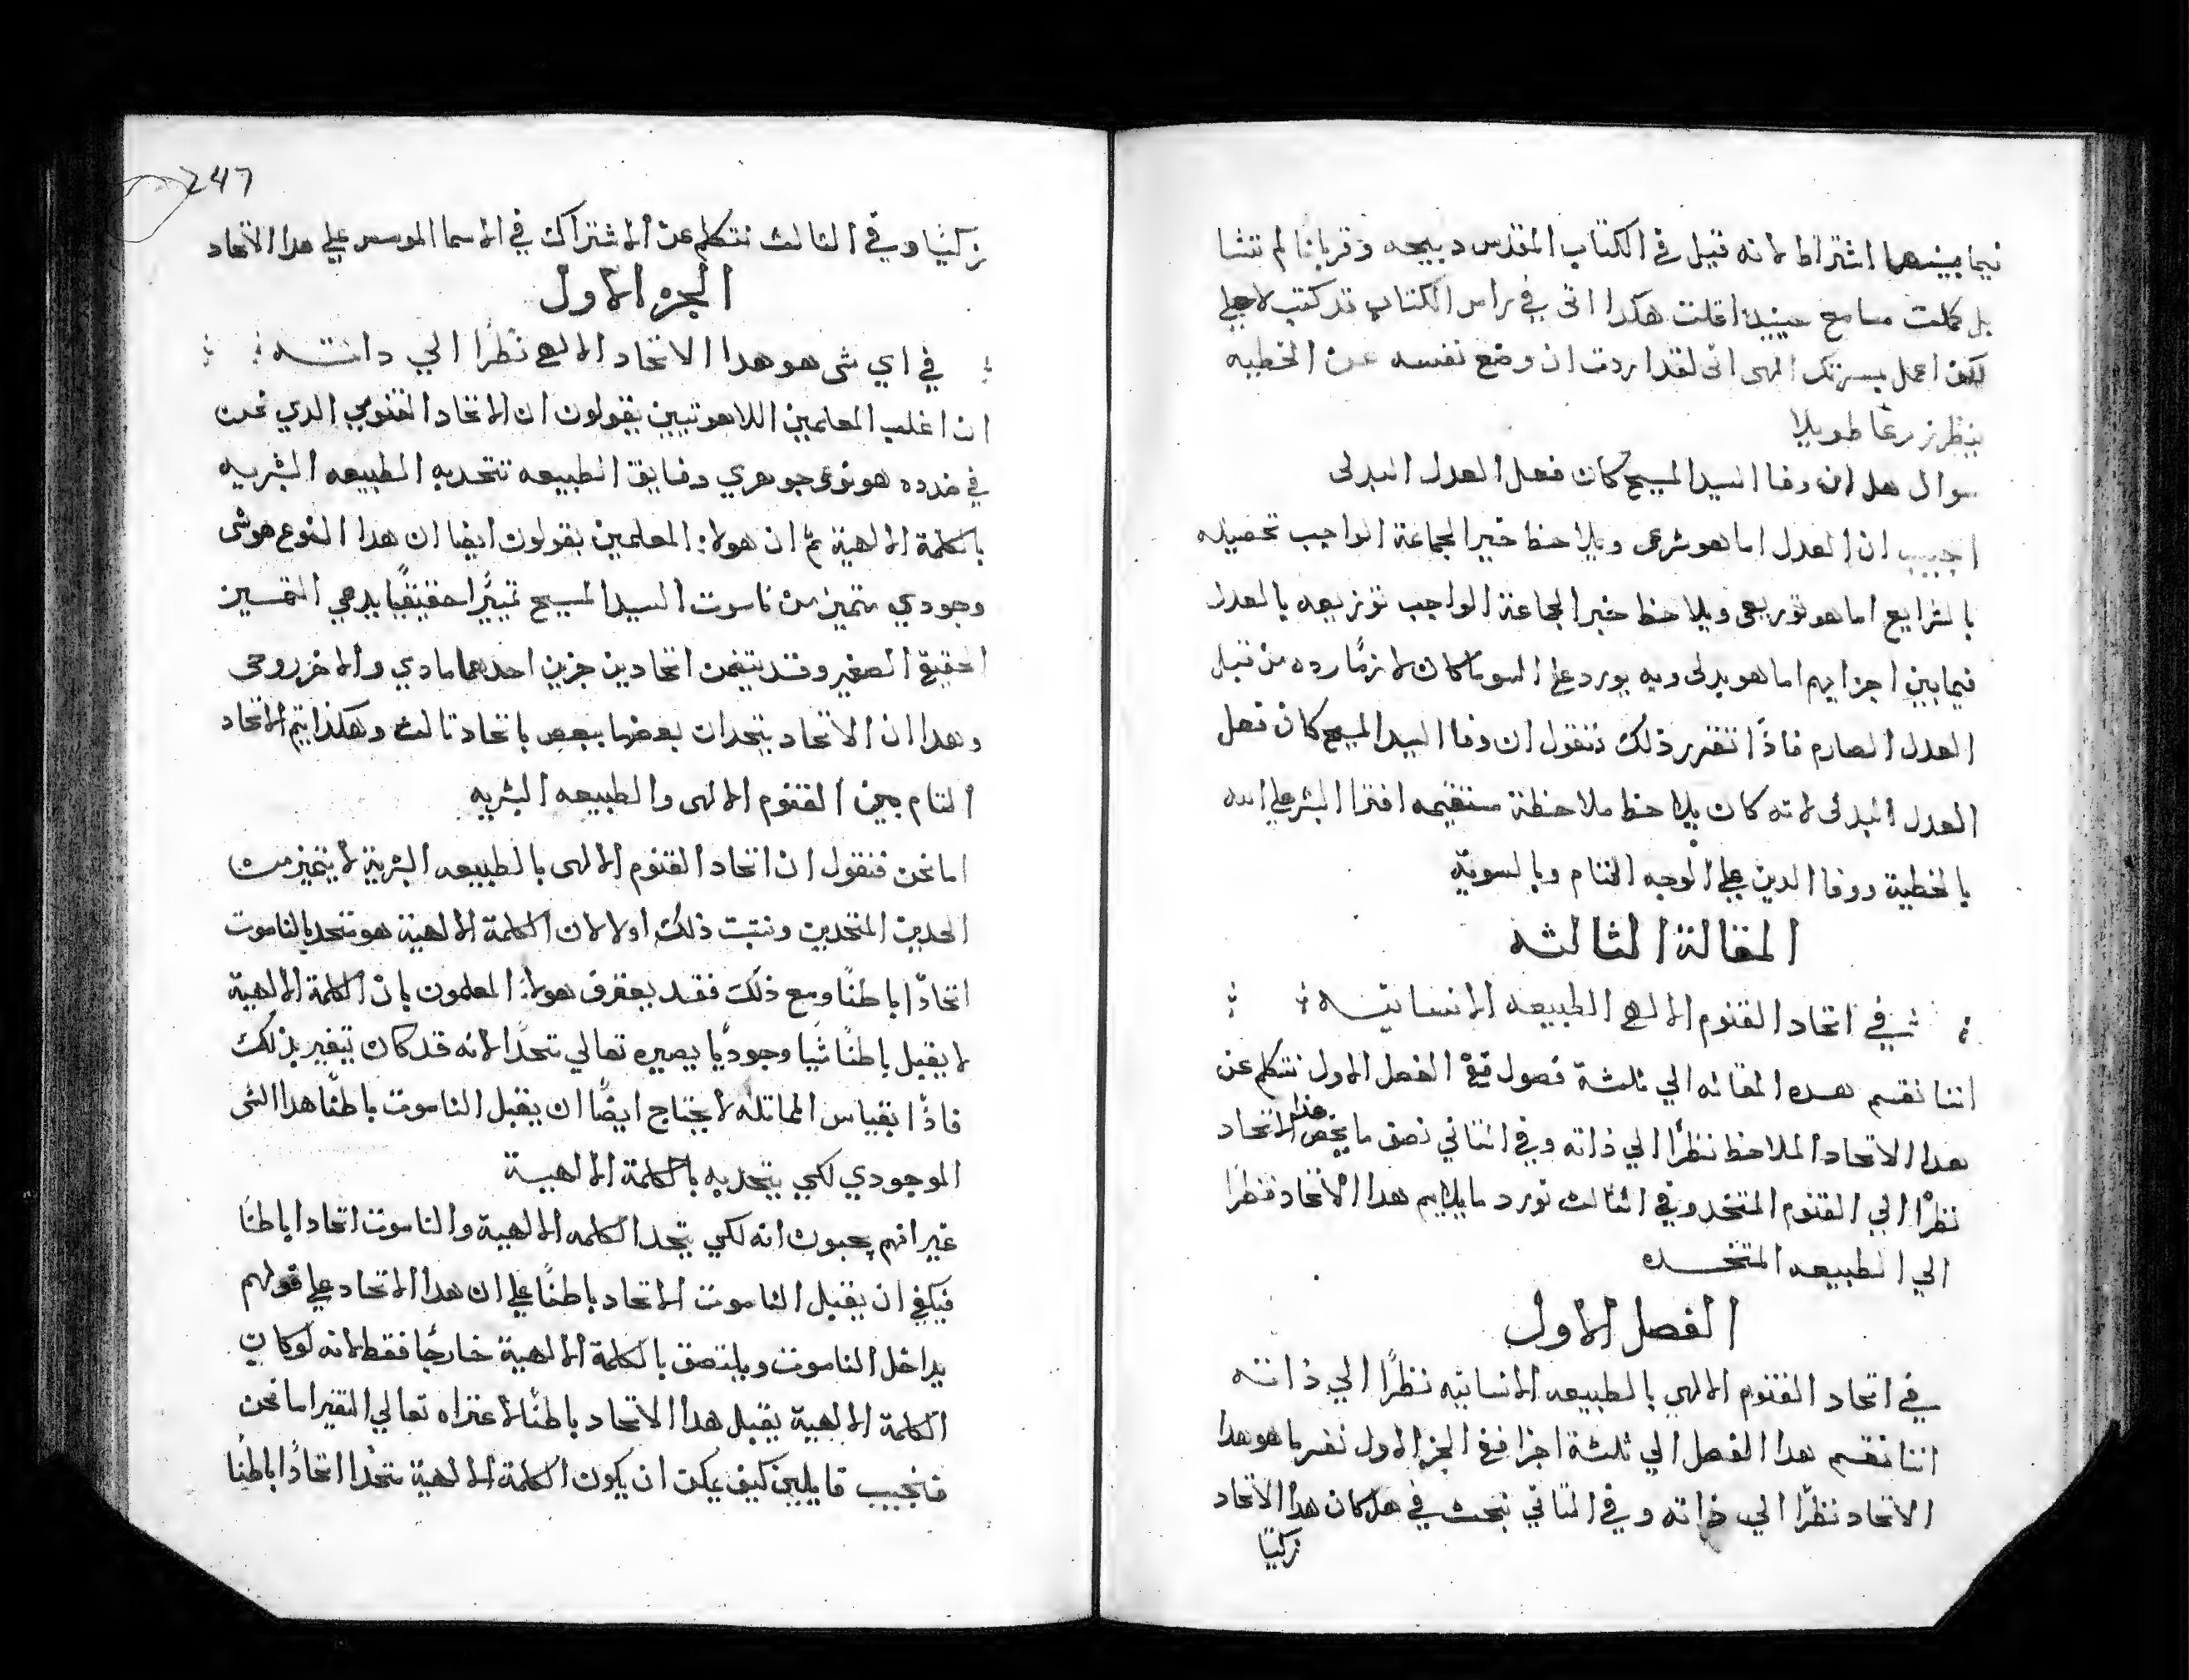 فيما بينهما اشتراطا لانه قيل في الكتاب المقدس دبيحه وقربانا لم تشا
بل كملت مسامع حينيدا قلت هكدا اتى في راس الكتاب قد كتب لاجلي
لكن اعمل بمسرتك الهى انى لقد اردت ان وضع نفسه عن الخطيه
ينظر زرعًا طويلا
سوال هل ان وفا السيد المسيح كان فعل العدل البدلى
اجيب ان العدل اما هو شرعى ويلاحظ خير الجماعة الواجب تحصيله
بالشرايع اما هو توريعى ويلاحظ خير الجماعة الواجب توزيعه بالعدل
فيما بين اجزايهم اما هو بدلى وبه يورد على السوا ما كان لازمًا رده من قبل
العدل الصارم فاذًا تقرر ذلك فنقول ان وفا السيد المسيح كان فعل
العدل البدلى لانه كان يلاحظ ملاحظة مستقيمه افترا البشر على الله
بالخطية ووفا الدين على الوجه التام وبالسوية
المقالة الثالثه
في اتحاد القنوم الالهى الطبيعه الانسانيه
اننا نقسم هده المقاله الي ثلثة فصول ففى الفصل الاول نتكلم عن
هدا الاتحاد الملاحظ نظرًا الي ذاته وفي الثاني نصف ما يخص هذا الاتحاد
نظرًا الي القنوم المتخد وفي الثالث نورد ما يلايم هدا الاتحاد نظرًا
الي الطبيعه المتخده
الفصل الاول
في اتحاد القنوم الالهى بالطبيعه الانسانيه نظرًا الي ذاته
اننا نقسم هدا الفصل الي ثلثة اجزا ففى الجز الاول نفسر ما هو هدا
الاتحاد نظرًا الي ذاته وفي الثاني نبحث في هل كان هدا الاتحاد
زكيًا
247
زكيًا وفي الثالث نتكلم عن الاشتراك في الاسما الموسس على هدا الاتحاد
الجزء الاول
في اي شى هو هدا الاتحاد الالهى نظرًا الي داته
ان اغلب المعلمين اللاهوتيين يقولون ان الاتحاد القنومي الدي نحن
في صدده هو نوع جوهري وفايق الطبيعه تتحد به الطبيعه البشريه
بالكلمة الالهية ثم ان هولاء المعلمين يقولون ايضا ان هدا النوع هو شى
وجودي متميز من ناسوت السيد المسيح تميزًا حقيقيًا يدعي التميز
الحقيقي الصغير وقد يتضمن اتحادين جزين احدهما مادي والاخر روحى
وهدا ان الاتحاد يتحدان بعضها ببعض باتحاد ثالث وهكذا يتم الاتحاد
التام بين القنوم الالهى والطبيعه البشريه
اما نحن فنقول ان اتحاد القنوم الالهى بالطبيعه البشرية لا يتميز من
الحدين المتحدين ونتبت ذلك اولا لان الكلمة الالهية هو متحد بالناسوت
اتحادًا باطنًا ومع ذلك فقد يعترف هولاء المعلمون بان الكلمة الالهية
لا يقبل باطنًا شيًا وجوديًا يصيره تعالي متحدًا لانه قد كان يتغير بذلك
فاذًا بقياس المماثله لا يحتاج ايضًا ان يقبل الناسوت باطنًا هدا الشى
الموجودي لكي يتحد به بالكلمة الالهية
غير انهم يجيبون انه لكي يتحد الكلمه الالهية والناسوت اتحادا باطنًا
فيكفي ان يقبل الناسوت الاتحاد باطنًا علي ان هدا الاتحاد علي قولهم
يداخل الناسوت ويلتصق بالكلمة الالهية خارجًا فقط لانه لو كان
الكلمة الالهية يقبل هدا الاتحاد باطنًا لاعتراه تعالي التغير اما نحن
فنجيب قايلين كيف يمكن ان يكون الكلمة الالهية متحدًا اتحادًا باطنًا